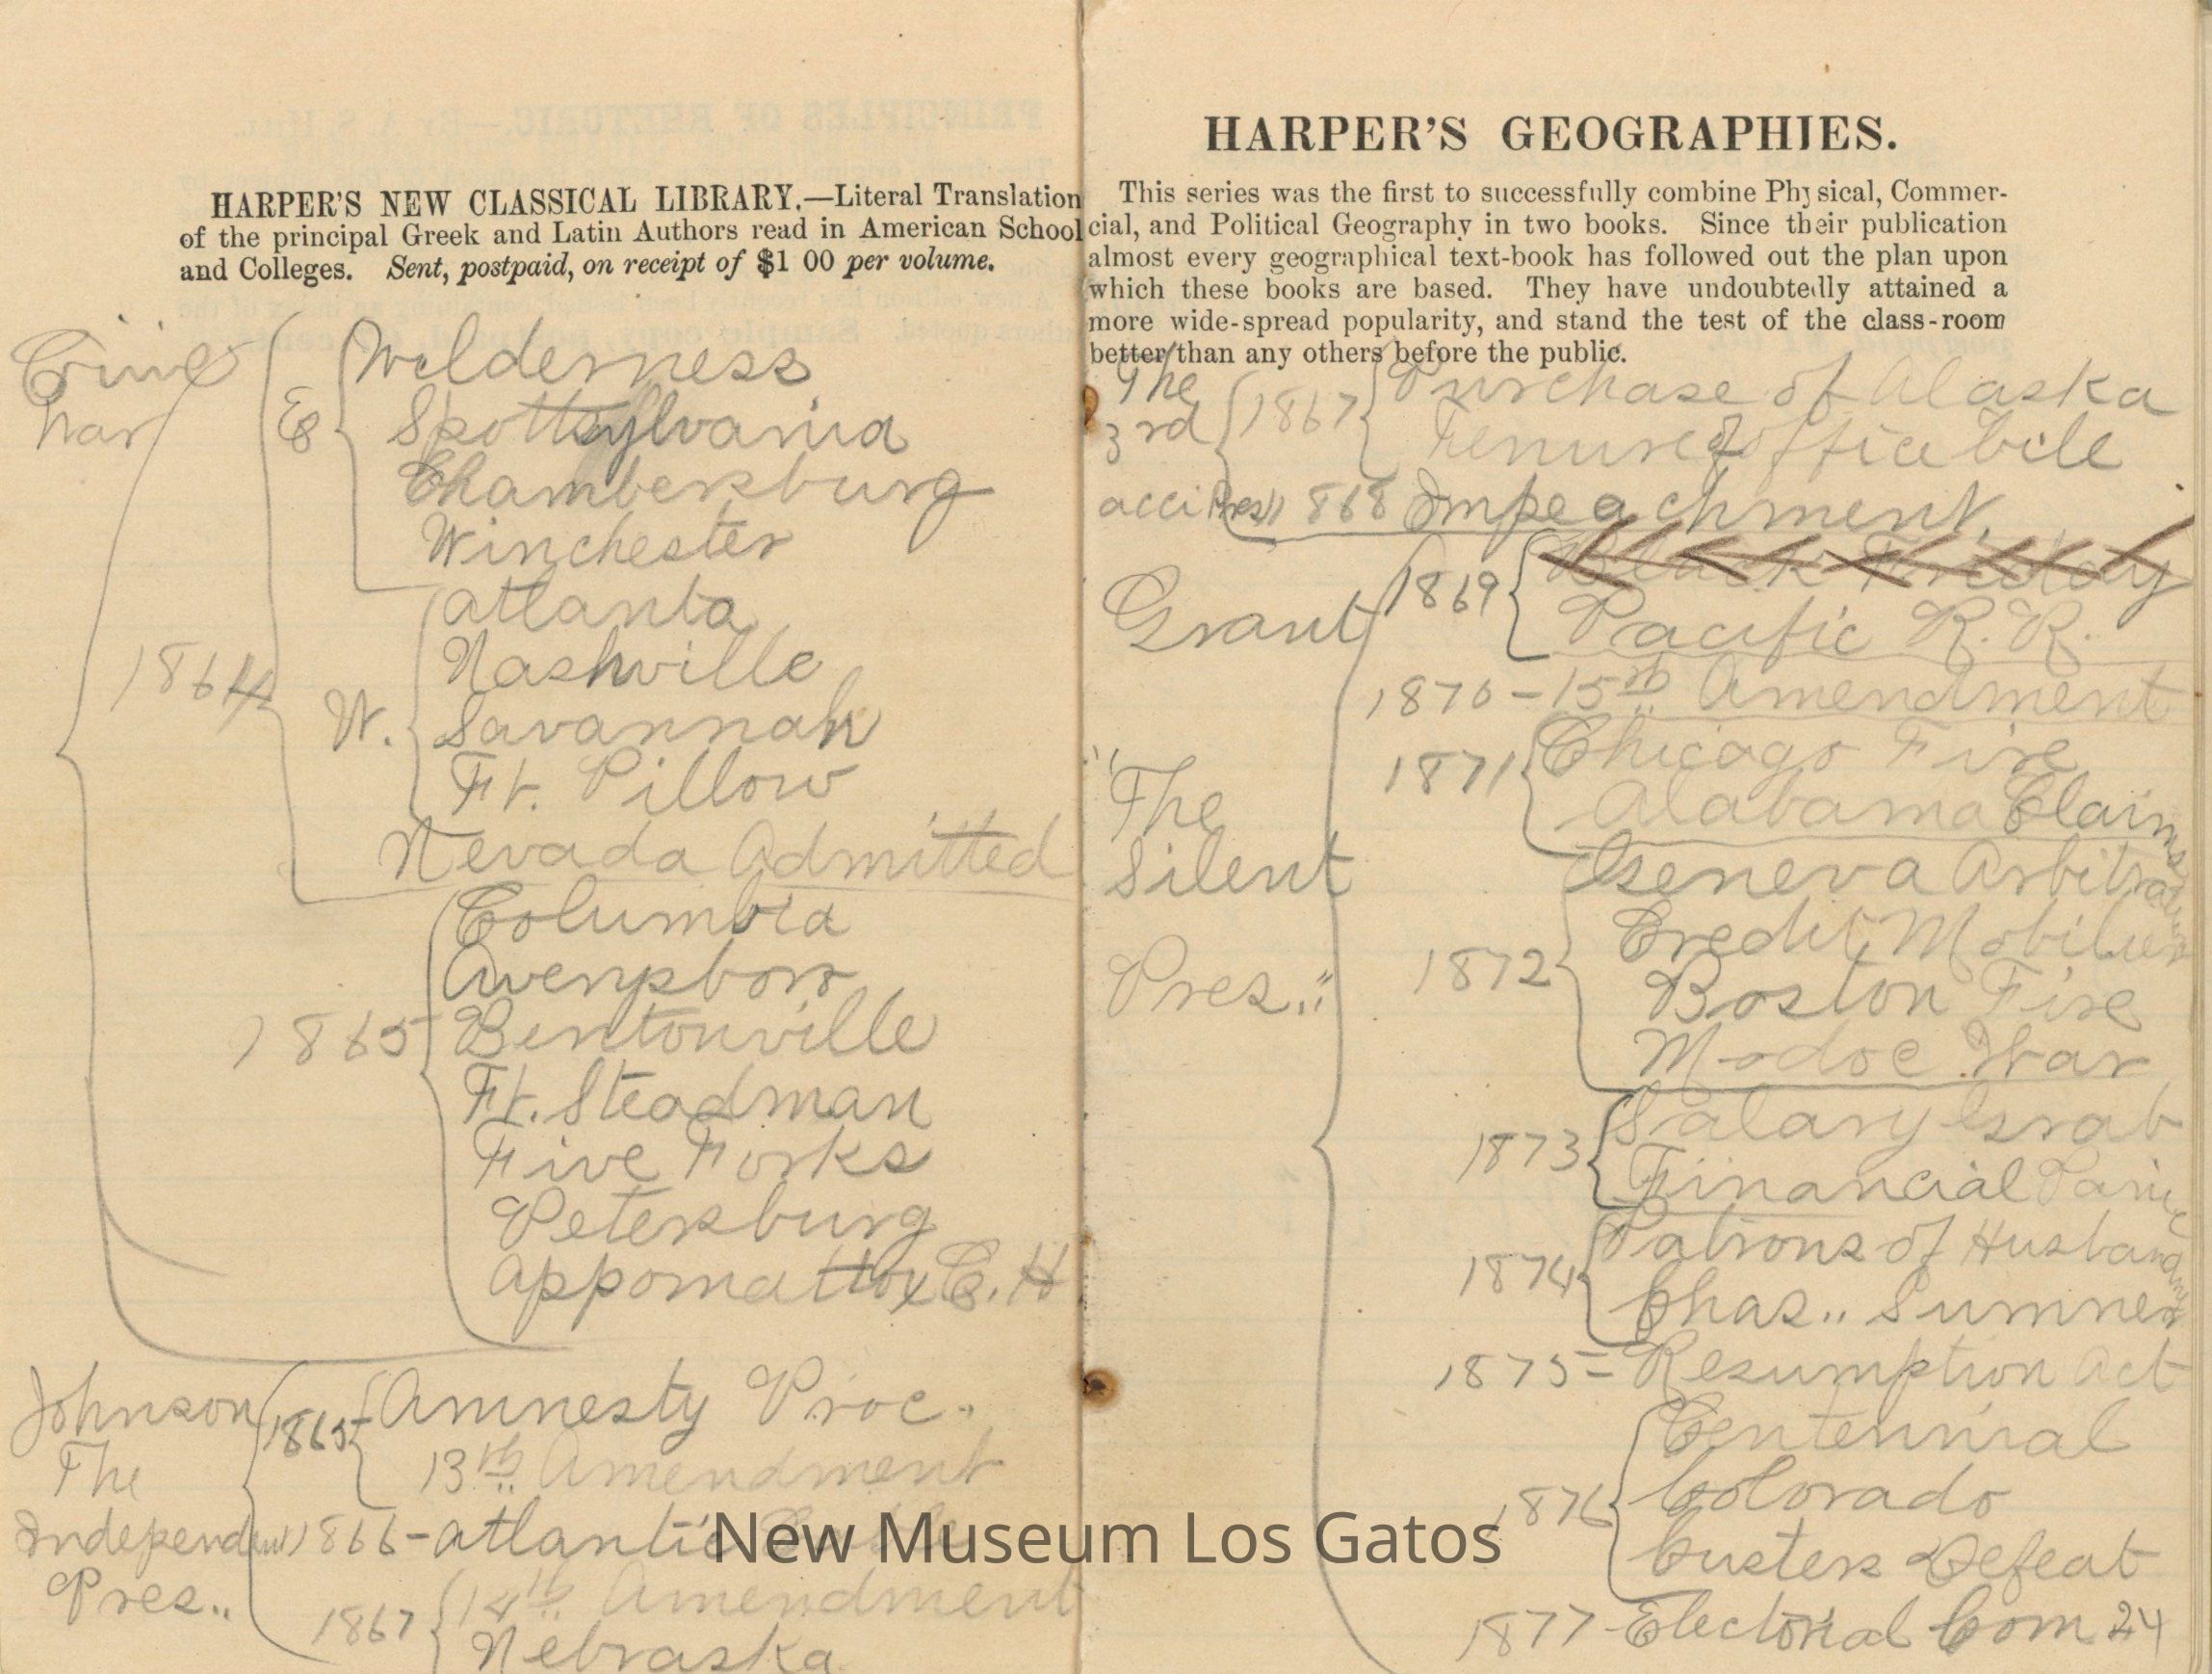 HARPER'S NEW CLASSICAL LIBRARY.—Literal Translation
of the principal Greek and Latin Authors read in American School
and Colleges. Sent, postpaid, on receipt of $1 00 per volume.
Civil
War
1864
E
Wilderness
Spottsylvania
Chambersburg
Winchester
W.
Atlanta
Nashville
Savannah
Ft. Pillow
Nevada Admitted
1865
Columbia
Bentonville
Ft. Steadman
Five Forks
Petersburg
Appomattox C. H
Johnson
The
Independent
Pres..
1865
Amnesty Proc.
13th Amendment
1866 - Atlantic Cable
1867
14th Amendment
Nebraska
HARPER'S GEOGRAPHIES.
This series was the first to successfully combine Physical, Commer-
cial, and Political Geography in two books. Since their publication
almost every geographical text-book has followed out the plan upon
which these books are based. They have undoubtedly attained a
more wide-spread popularity, and stand the test of the class-room
better than any others before the public.
The
3rd
acci Pres
1867
Purchase of Alaska
Tenure of office bill
1868 Impeachment.
Grant
"The
Silent
Pres.."
1869
Black Friday
Pacific R. R.
1870 - 15th Amendment
1871
Chicago Fire
Alabama Claims
1872
Geneva Arbitration
Credit Mobilier
Boston Fire
Modoc War
1873
Salary Grab
Financial Panic
1874
Patrons of Husbandry
Chas.. Sumner
1875 = Resumption Act
1876
Centennial
Colorado
Custers Defeat
1877 - Electorial Com 24
New Museum Los Gatos